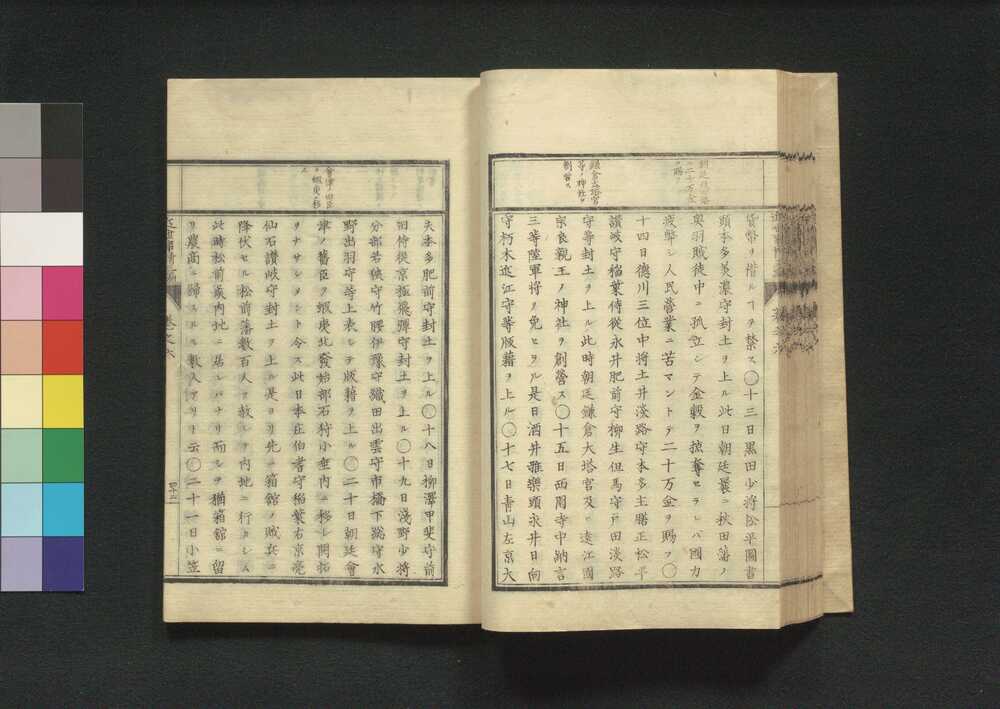 朝廷秋田藩
ニ二十万金
ヲ賜フ
鎌倉大塔宮
等ノ神社ヲ
創營ス
貨幣ヲ惜ルヿヲ禁ス○十三日黒田少將松平圖書
頭本多美濃守封土ヲ上ル此日朝廷曩ニ秋田藩ノ
奥羽賊徒中ニ孤立シテ金穀ヲ掠奪セラレバ國力
疲弊シ人民營業ニ苦マントテ二十万金ヲ賜フ○
十四日德川三位中將土井淡路守本多主膳正松平
讃岐守稻葉侍從永井肥前守柳生但馬守戸田淡路
守等封土ヲ上ル此時朝廷鎌倉大塔宮及ヒ遠江國
宗良親王ノ神社ヲ創營ス○十五日西園寺中納言
三等陸軍將ヲ免セラル是日酒井雅樂頭永井日向
守朽木近江守等版籍ヲ上ル○十七日青山左京大
會津ノ旧臣
ヲ蝦夷ニ移
ス
夫本多肥前守封土ヲ上ル○十八日柳澤甲斐守前
田侍從京極飛彈守封土ヲ上ル○十九日淺野少將
分部若狭守竹腰伊豫守織田出雲守市橋下総守水
野出羽守等上表シテ版籍ヲ上ル○二十日朝廷會
津ノ舊臣ヲ蝦夷北發始部石狩小樽内ニ移シ開拓
ヲナサシメント令ス此日本庄伯耆守稻葉右京亮
仙石讃岐守封土ヲ上ル是日ヨリ先キ箱館ノ賊兵ニ
降伏セル松前藩數百人ヲ赦シテ内地ニ行カシム
此時松前歳内地ニ居レバナリ而シテ猶箱館ニ留
リ農商ニ歸スルモノ數人アリト云○二十一日小笠
卷之六
四十三